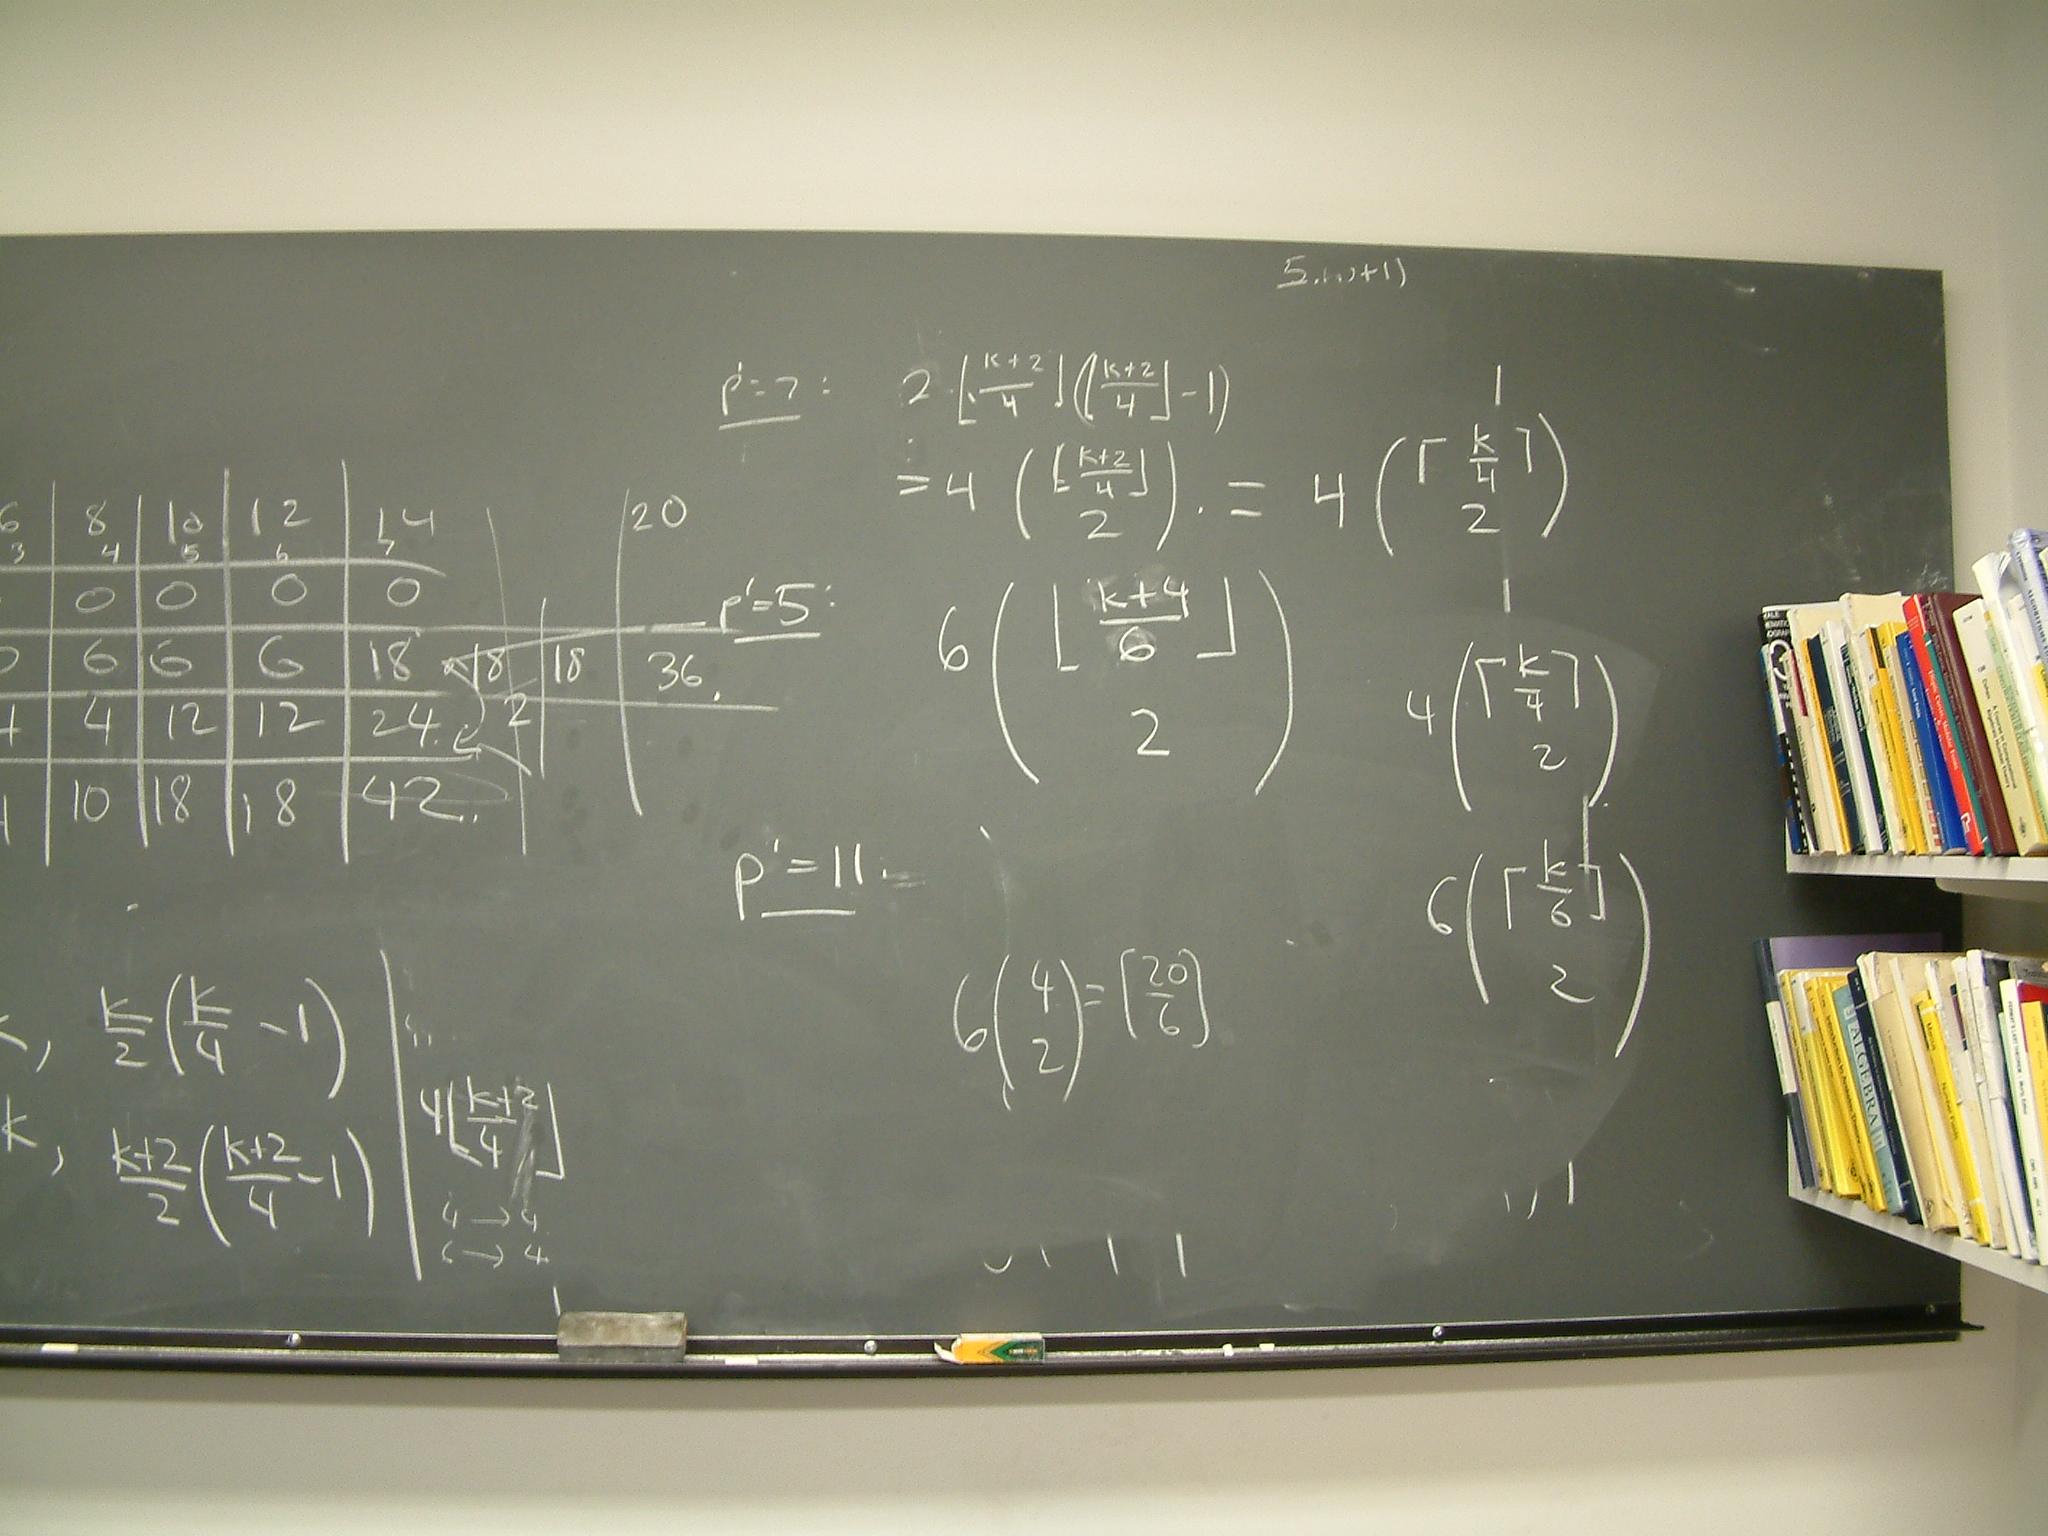 5.
p'=7: 2⌊(k+2)/4⌋(⌊(k+2)/4⌋-1)
= 4 (⌊(k+2)/4⌋ 2). = 4 (⌈k/4⌉ 2)
6 8 10 12 14 20
3 4 5 6 7
0 0 0 0
0 6 6 6 18 18 18 36.
4 4 12 12 24. 2
10 18 18 42.
p'=5: 6 (⌊(k+4)/6⌋ 2)
4 (⌈k/4⌉ 2)
p'=11 =
6 (⌈k/6⌉ 2)
6 (4 2) = ⌈20/6⌉
k, k/2 (k/4 - 1)
k, (k+2)/2 ((k+2)/4 - 1)
4⌊(k+2)/4⌋
4 → 4
6 → 4
ALGEBRA